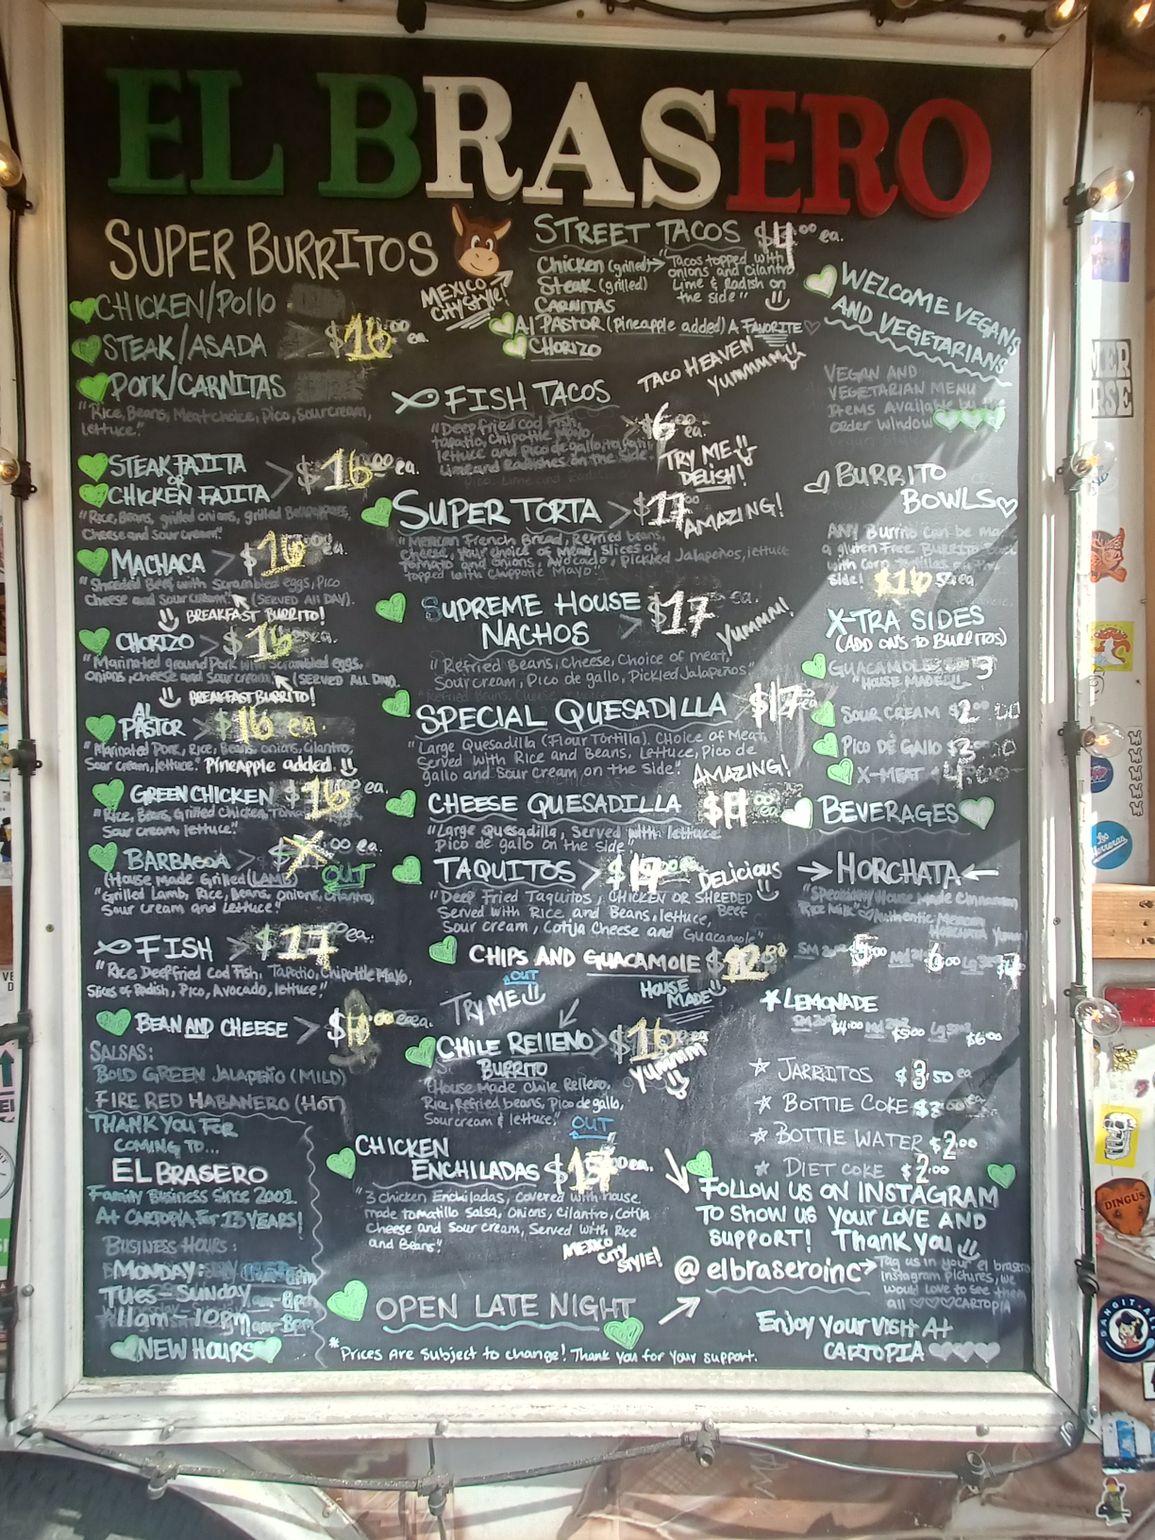 EL BRASERO
SUPER BURRITOS
MEXICO
City Style!
CHICKEN/Pollo
STEAK/ASADA
$16.00 ea
PORK/CARNITAS
"Rice, Beans, Meat choice, Pico, Sour cream,
lettuce."
STEAK FAJITA
or
CHICKEN FAJITA > $16.00 ea.
"Rice, Beans, grilled onions, grilled Bell peppers,
Cheese and Sour cream."
MACHACA > $16 ea.
"Shreded Beef with Scrambled eggs, Pico
Cheese and Sour cream" (SERVED All DAY).
BREAKFAST BURRITO!
CHORIZO > $16 ea.
"Marinated ground Pork with Scrambled eggs,
onions, cheese and Sour cream" (SERVED ALL DAY).
BREAKFAST BURRITO!
AL
PASTOR > $16 ea
"Marinated Pork, Rice, Beans, onions, cilantro,
Sour cream, lettuce." Pineapple added
GREEN CHICKEN $16
"Rice, Beans, Grilled Chicken,
Sour cream, lettuce."
BARBACOA > .00 ea.
(House made Grilled LAMB) OUT
"Grilled Lamb, Rice, Beans, onions, cilantro,
Sour cream and lettuce."
FISH > $17 ea.
"Rice, Deep fried Cod Fish, Tapatio, Chipotle Mayo,
Slices of Radish, Pico, Avocado, lettuce."
BEAN AND CHEESE > ea.
SALSAS:
BOLD GREEN JALAPEÑO (MILD)
FIRE RED HABANERO (HOT)
THANK YOU FOR
COMING TO...
EL BRASERO
Family Business Since 2001
At CARTOPIA For 13 YEARS!
BUSINESS HOURS:
MONDAY
Tues-Sunday
11am - 10pm
NEW HOURS
STREET TACOS $4.00 ea.
Chicken (grilled) → "Tacos topped with
onions and cilantro
Steak (grilled)
Lime & Radish on
the side"
CARNITAS
Al PASTOR (pineapple added) A FAVORITE
CHORIZO
TACO HEAVEN
Yummmy
FISH TACOS
"Deep fried Cod Fish,
tapatio, Chipotle Mayo,
Pico de gallo,
Lime and Radishes on the side."
> $6.00
ea.
TRY ME
DELISH!
SUPER TORTA > $17
AMAZING!
"Mexican French Bread, Refried beans,
cheese, your choice of Meat, Slices of
Tomato and onions, Avocado, pickled Jalapeños, lettuce
topped with Chipotle Mayo."
SUPREME HOUSE
NACHOS > $17 ea.
Yummm!
"Refried Beans, Cheese, Choice of meat,
Sour cream, Pico de gallo, Pickled Jalapeños"
SPECIAL QUESADILLA > $17 ea
"Large Quesadilla (Flour Tortilla), Choice of Meat,
Served with Rice and Beans, Lettuce, Pico de
gallo and Sour cream, on the side." AMAZING!
CHEESE QUESADILLA > $11.00 ea
"Large Quesadilla, Served with lettuce
Pico de gallo on the side"
TAQUITOS > Delicious
"Deep Fried Taquitos, CHICKEN OR SHREDED
Beef
Served with Rice and Beans, lettuce,
Sour cream, Cotija Cheese and Guacamole"
CHIPS AND GUACAMOLE $12
OUT
HOUSE
MADE
TRY ME
CHILE RELLENO > $16
BURRITO
Yummm
(House Made Chile Relleno,
Rice, Refried beans, Pico de gallo,
Sour cream & lettuce."
OUT
CHICKEN
ENCHILADAS ea.
"3 chicken Enchiladas, covered with house
made tomatillo salsa, Onions, Cilantro, Cotija
Cheese and Sour cream, Served with Rice
and Beans".
MEXICO
CITY
STYLE!
OPEN LATE NIGHT
*Prices Are Subject to change! Thank you for your support.
WELCOME VEGANS
AND VEGETARIANS
VEGAN AND
VEGETARIAN MENU
Items Available by
Order Window
BURRITO
BOWLS
ANY Burrito can be made
a gluten Free BURRITO Bowl
with Corn Tortillas on the
side! $16 ea
X-TRA SIDES
(ADD ONS TO BURRITOS)
GUACAMOLE 3
"HOUSE MADE"
SOUR CREAM $2
PICO DE GALLO $2
X-MEAT 4
BEVERAGES
→ HORCHATA ←
House Made Cinnamon
Rice Milk" Authentic Mexican
HORCHATA Yumm
SM 5 Md 6 Lg $7
*LEMONADE
SM $4.00 Md $5.00 Lg $6.00
JARRITOS $3.50 ea
BOTTLE COKE
BOTTLE WATER $2.00
DIET COKE $2.00
FOLLOW US ON INSTAGRAM
TO SHOW US YOUR LOVE AND
SUPPORT! Thank you
@elbraseroinc → Tag us in your el brasero
instagram pictures, we
would love to see them
all CARTOPIA
Enjoy Your VISIT At
CARTOPIA
DINGUS